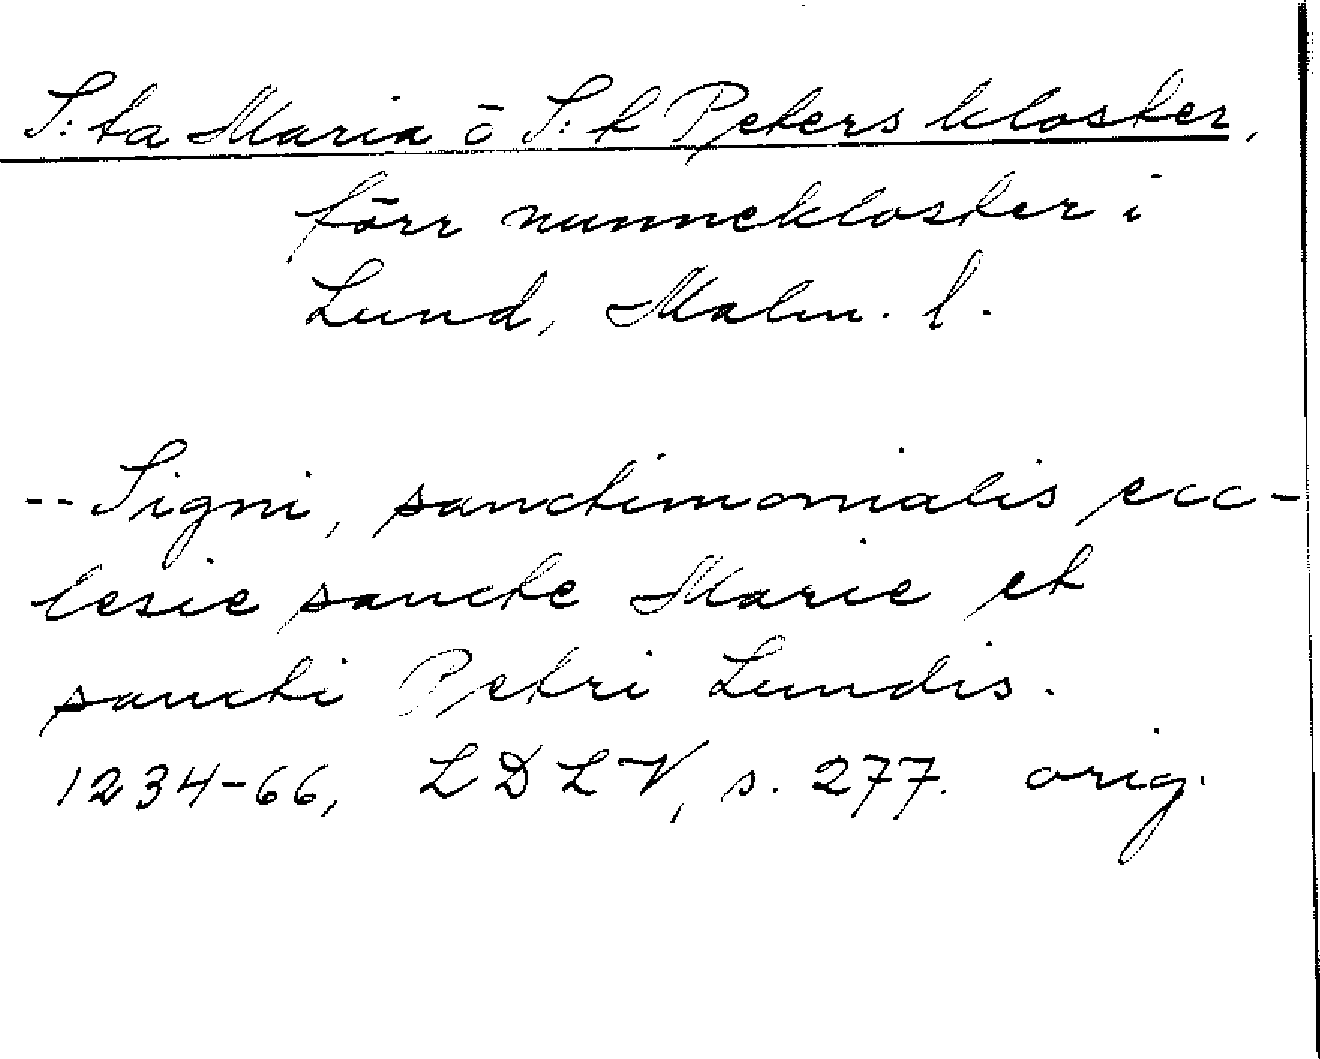 S:ta Maria o S:t Peters kloster,
förr nunnekloster i
Lund, Malm. l.
-- Signi, sanctimonialis ecc-
lesie sancte Marie et
sancti Petri Lundis.
1234-66, LDLV, s. 277. orig.